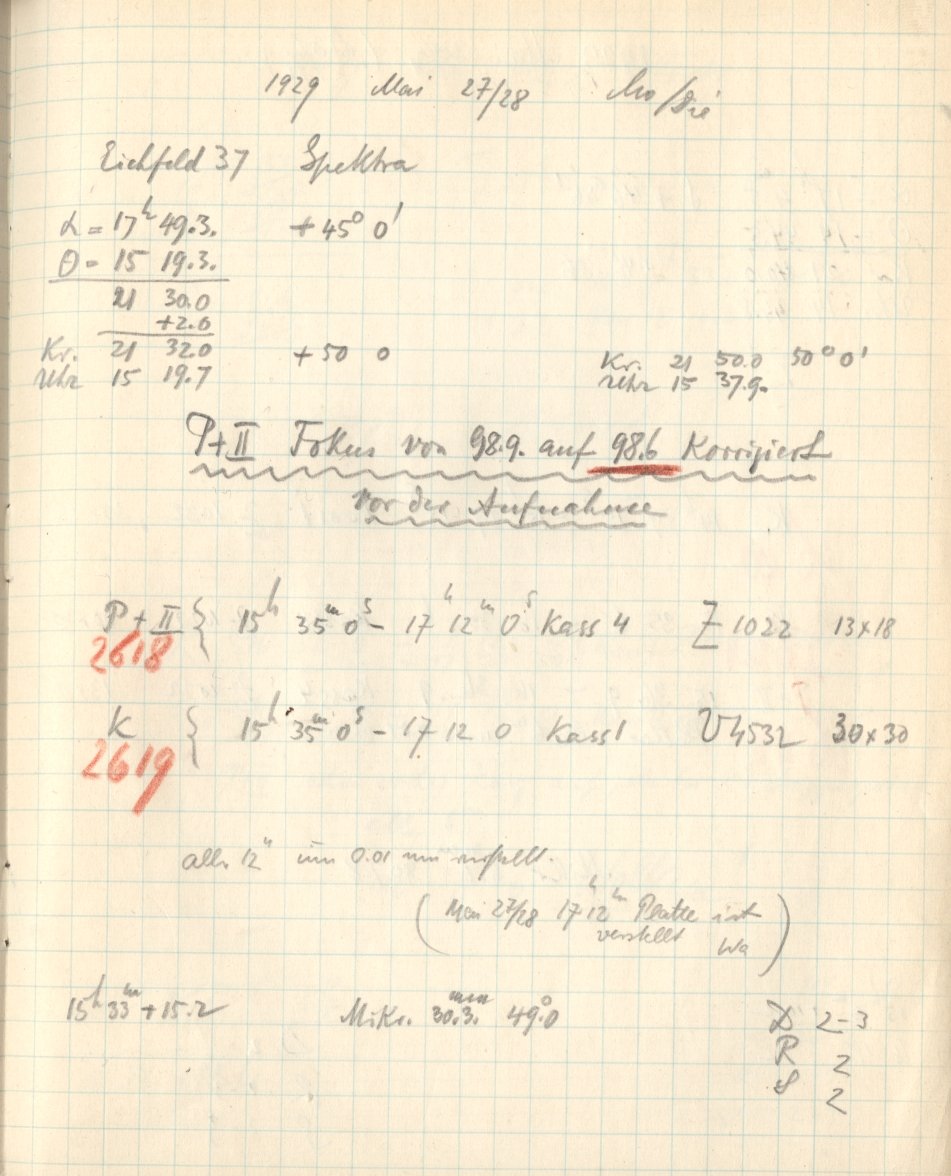 1929 Mai 27/28 Mo/Die
Eichfeld 37 Spektra
α = 17h 49.3. +45° 0'
θ = 15 19.3.
21 30.0
+2.0
Kr. 21 32.0 +50 0
Uhr 15 19.7
Kr. 21 50.0 50° 0'
Uhr 15 37.9.
P+II Fokus von 98.9. auf 98.6 Korrigiert
vor der Aufnahme
P+II { 15h 35m 0s - 17h 12m 0s Kass 4 Z 1022 13x18
2618
K { 15h 35m 0s - 17 12 0 Kass 1 V 4532 30x30
2619
alle 12m um 0.01 mm verstellt.
(Mai 27/28 17h 12m Platte ist
verstellt Wa)
15h 33m +15.2 Mikr. 30.3. mm 49°.0
D 2-3
R 2
S 2